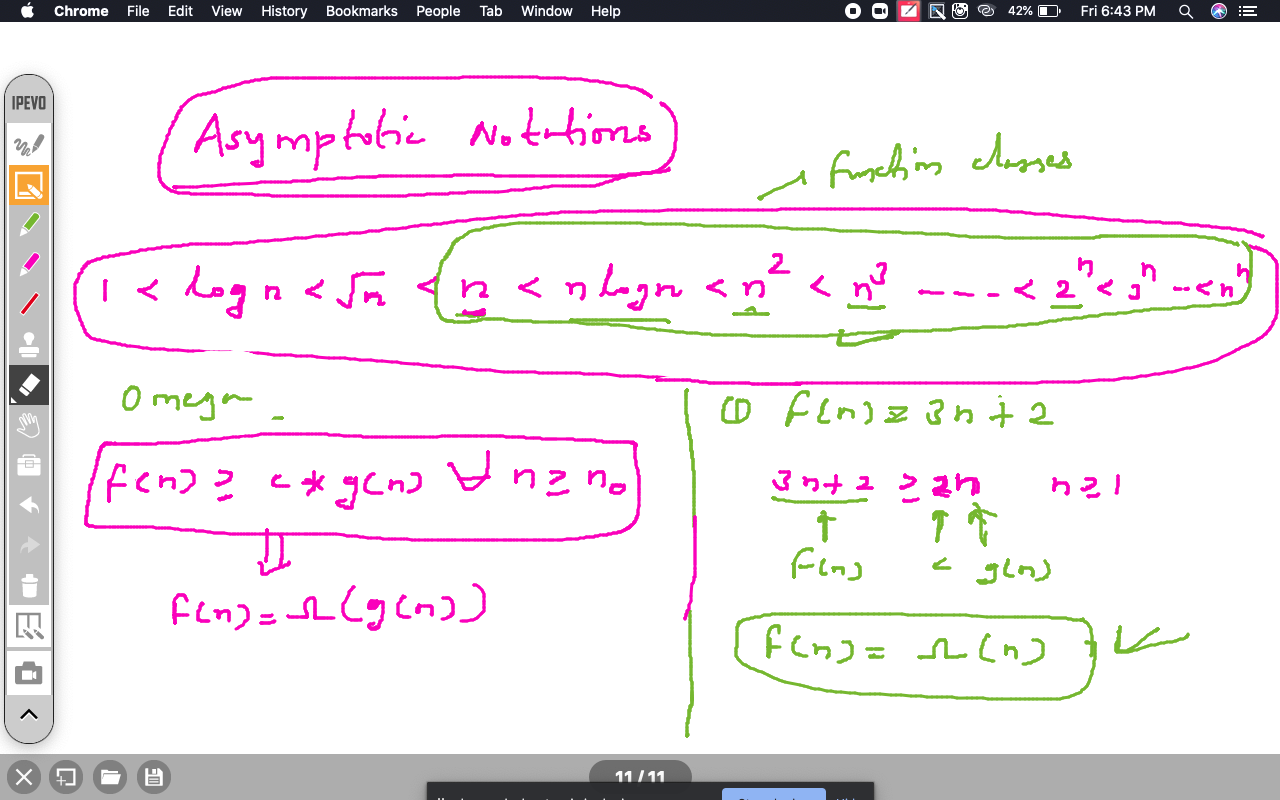 Chrome File Edit View History Bookmarks People Tab Window Help 42% Fri 6:43 PM
IPEVO
Asymptotic Notations
function classes
1 < log n < √n < n < n log n < n² < n³ ---- < 2ⁿ < 3ⁿ --< nⁿ
Omega
f(n) ≥ c * g(n) ∀ n ≥ n₀
f(n) = Ω(g(n))
① f(n) = 3n + 2
3n+2 ≥ 2n n ≥ 1
f(n) c g(n)
f(n) = Ω(n)
11 / 11